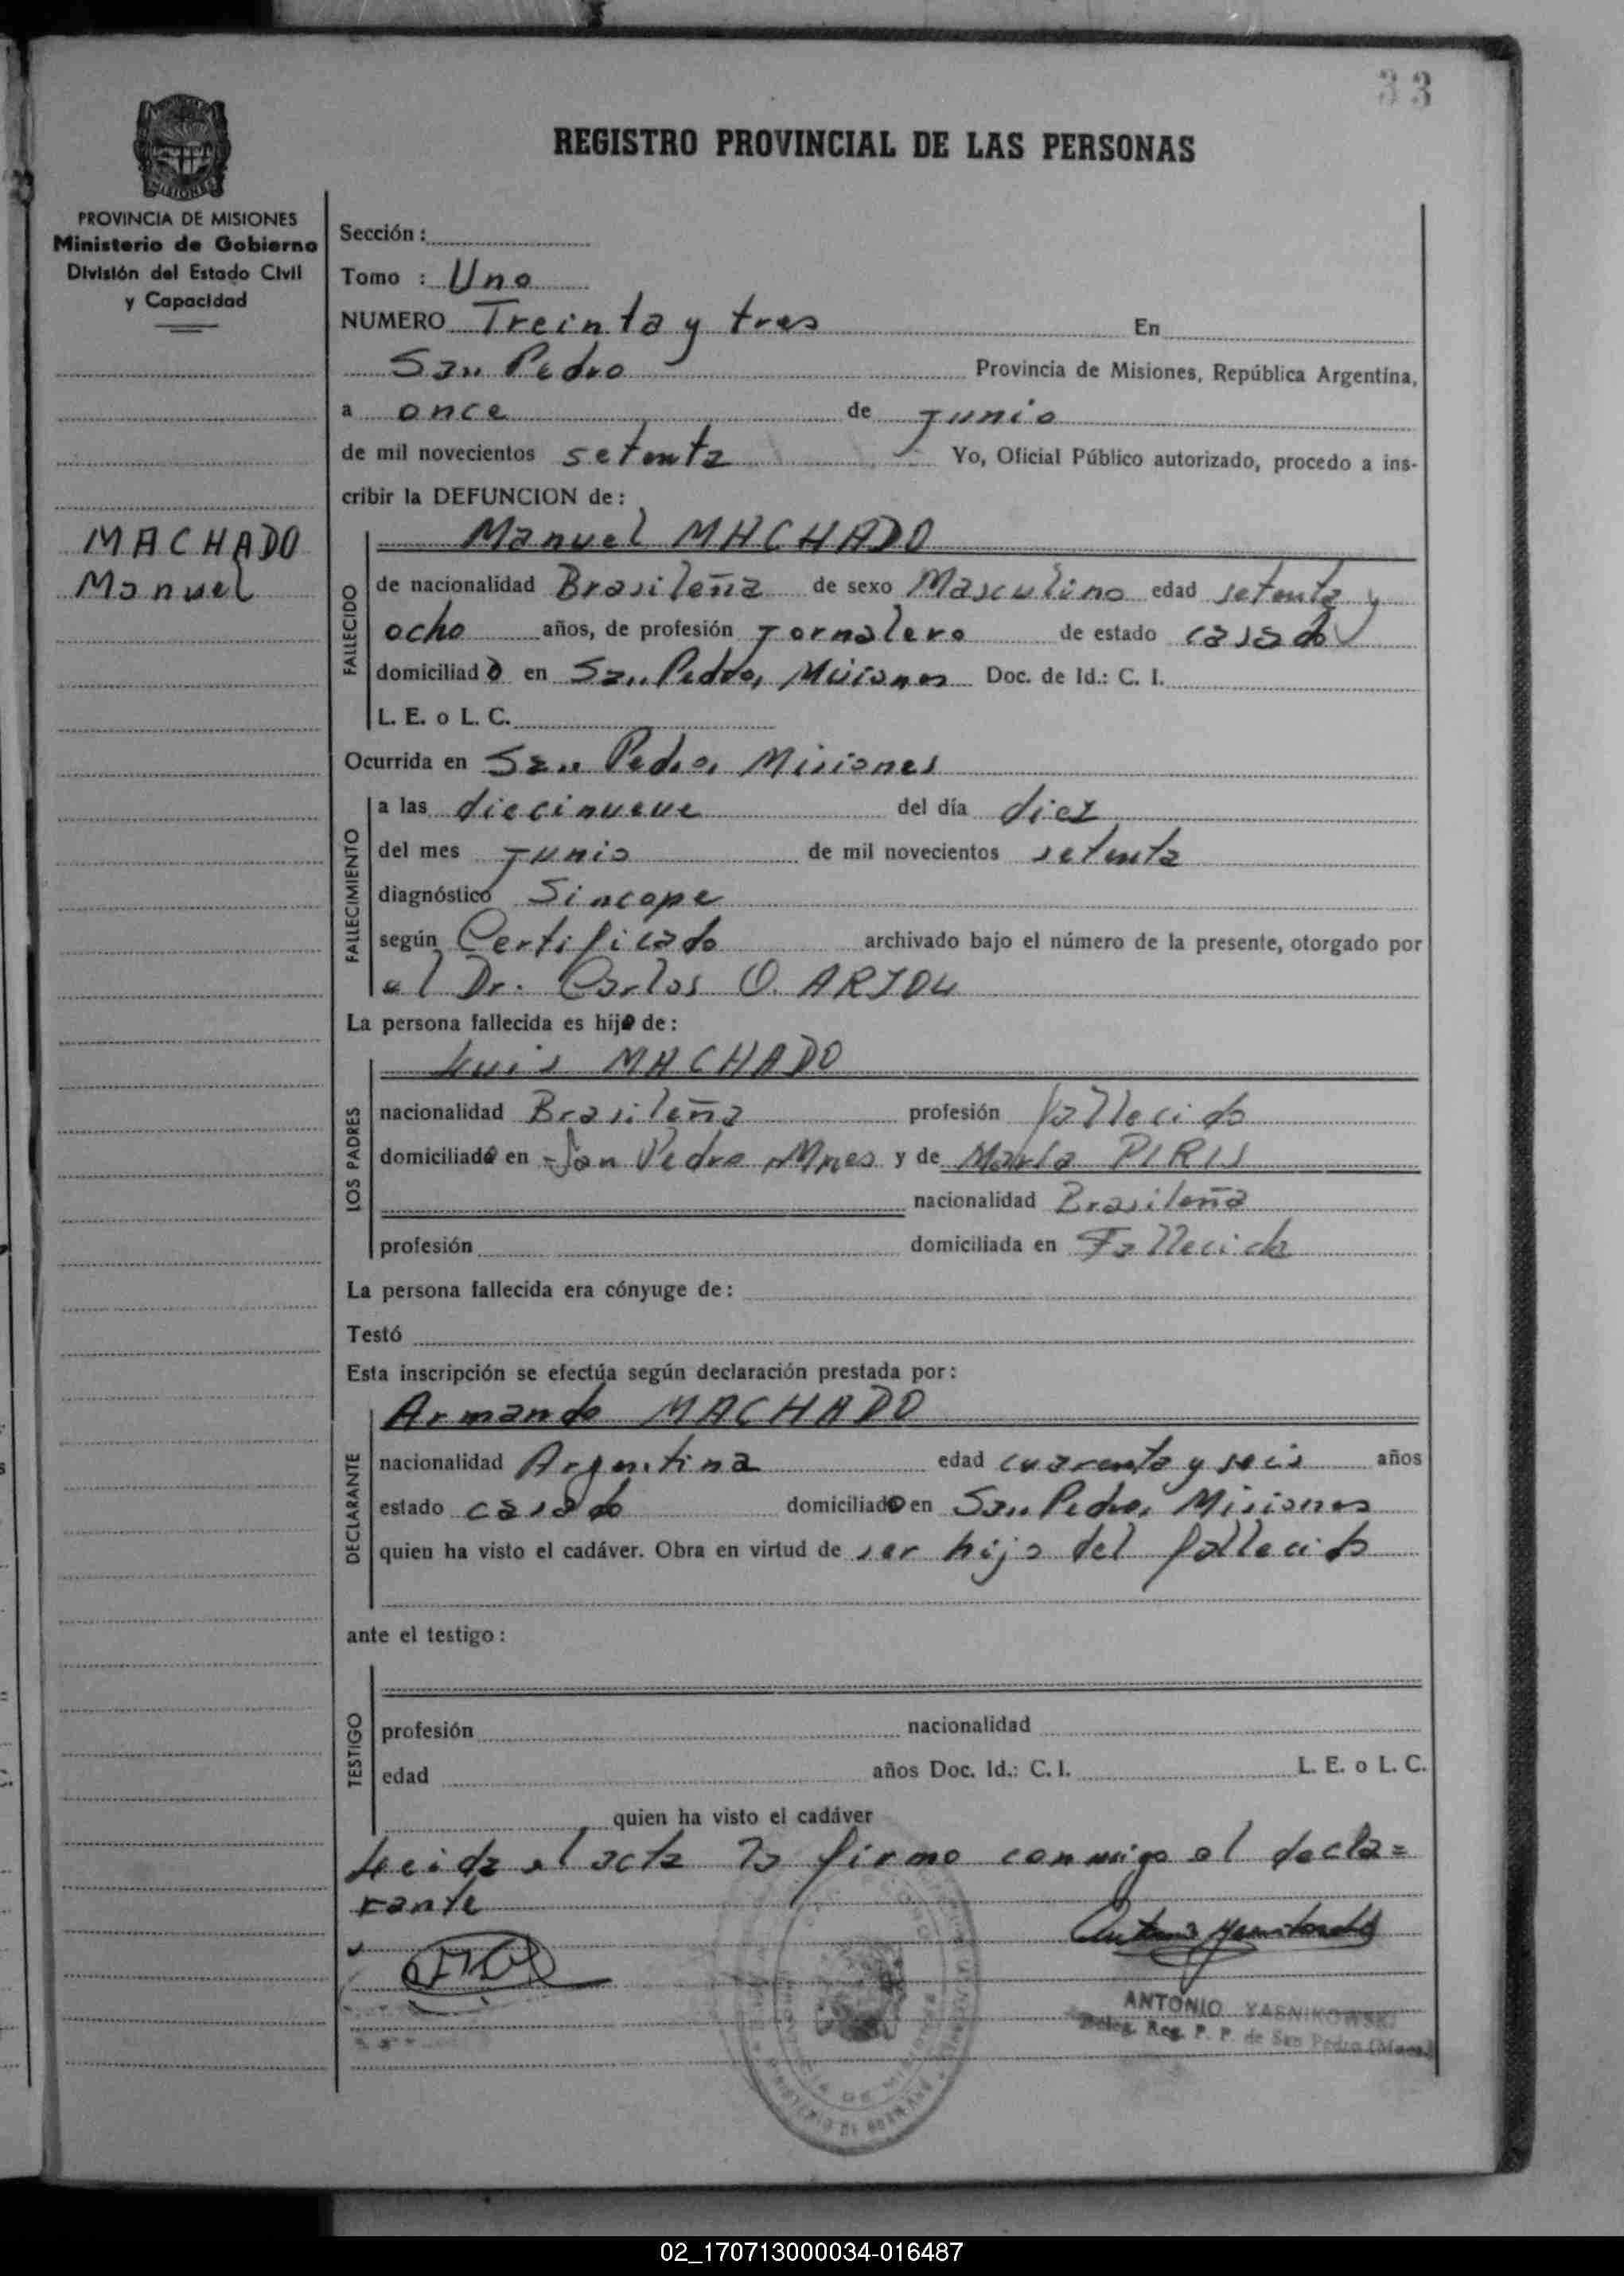 33
REGISTRO PROVINCIAL DE LAS PERSONAS
MISIONES
PROVINCIA DE MISIONES
Ministerio de Gobierno
División del Estado Civil
y Capacidad
MACHADO
Manuel
Sección :
Tomo : Uno
NUMERO Treinta y tres En
San Pedro Provincia de Misiones, República Argentina,
a once de Junio
de mil novecientos setenta Yo, Oficial Público autorizado, procedo a ins-
cribir la DEFUNCION de :
Manuel MACHADO
FALLECIDO
de nacionalidad Brasileña de sexo Masculino edad setenta y
ocho años, de profesión Jornalero de estado casado
domiciliado en San Pedro, Misiones Doc. de Id.: C. I.
L. E. o L. C.
Ocurrida en San Pedro, Misiones
FALLECIMIENTO
a las diecinueve del día diez
del mes Junio de mil novecientos setenta
diagnóstico Sincope
según Certificado archivado bajo el número de la presente, otorgado por
el Dr. Carlos O.
La persona fallecida es hijo de :
Luis MACHADO
LOS PADRES
nacionalidad Brasileña profesión fallecido
domiciliado en San Pedro Mnes y de María PIRIS
nacionalidad Brasileña
profesión domiciliada en Fallecida
La persona fallecida era cónyuge de :
Testó
Esta inscripción se efectúa según declaración prestada por :
Armando MACHADO
DECLARANTE
nacionalidad Argentina edad cuarenta y seis años
estado casado domiciliado en San Pedro, Misiones
quien ha visto el cadáver. Obra en virtud de ser hijo del fallecido
ante el testigo :
TESTIGO
profesión nacionalidad
edad años Doc. Id.: C. I. L. E. o L. C.
quien ha visto el cadáver
Leida el acta la firmo conmigo el decla=
rante
ANTONIO YASNIKOWSKI
Deleg. Reg. P. P. de San Pedro (Mnes.)
02_170713000034-016487